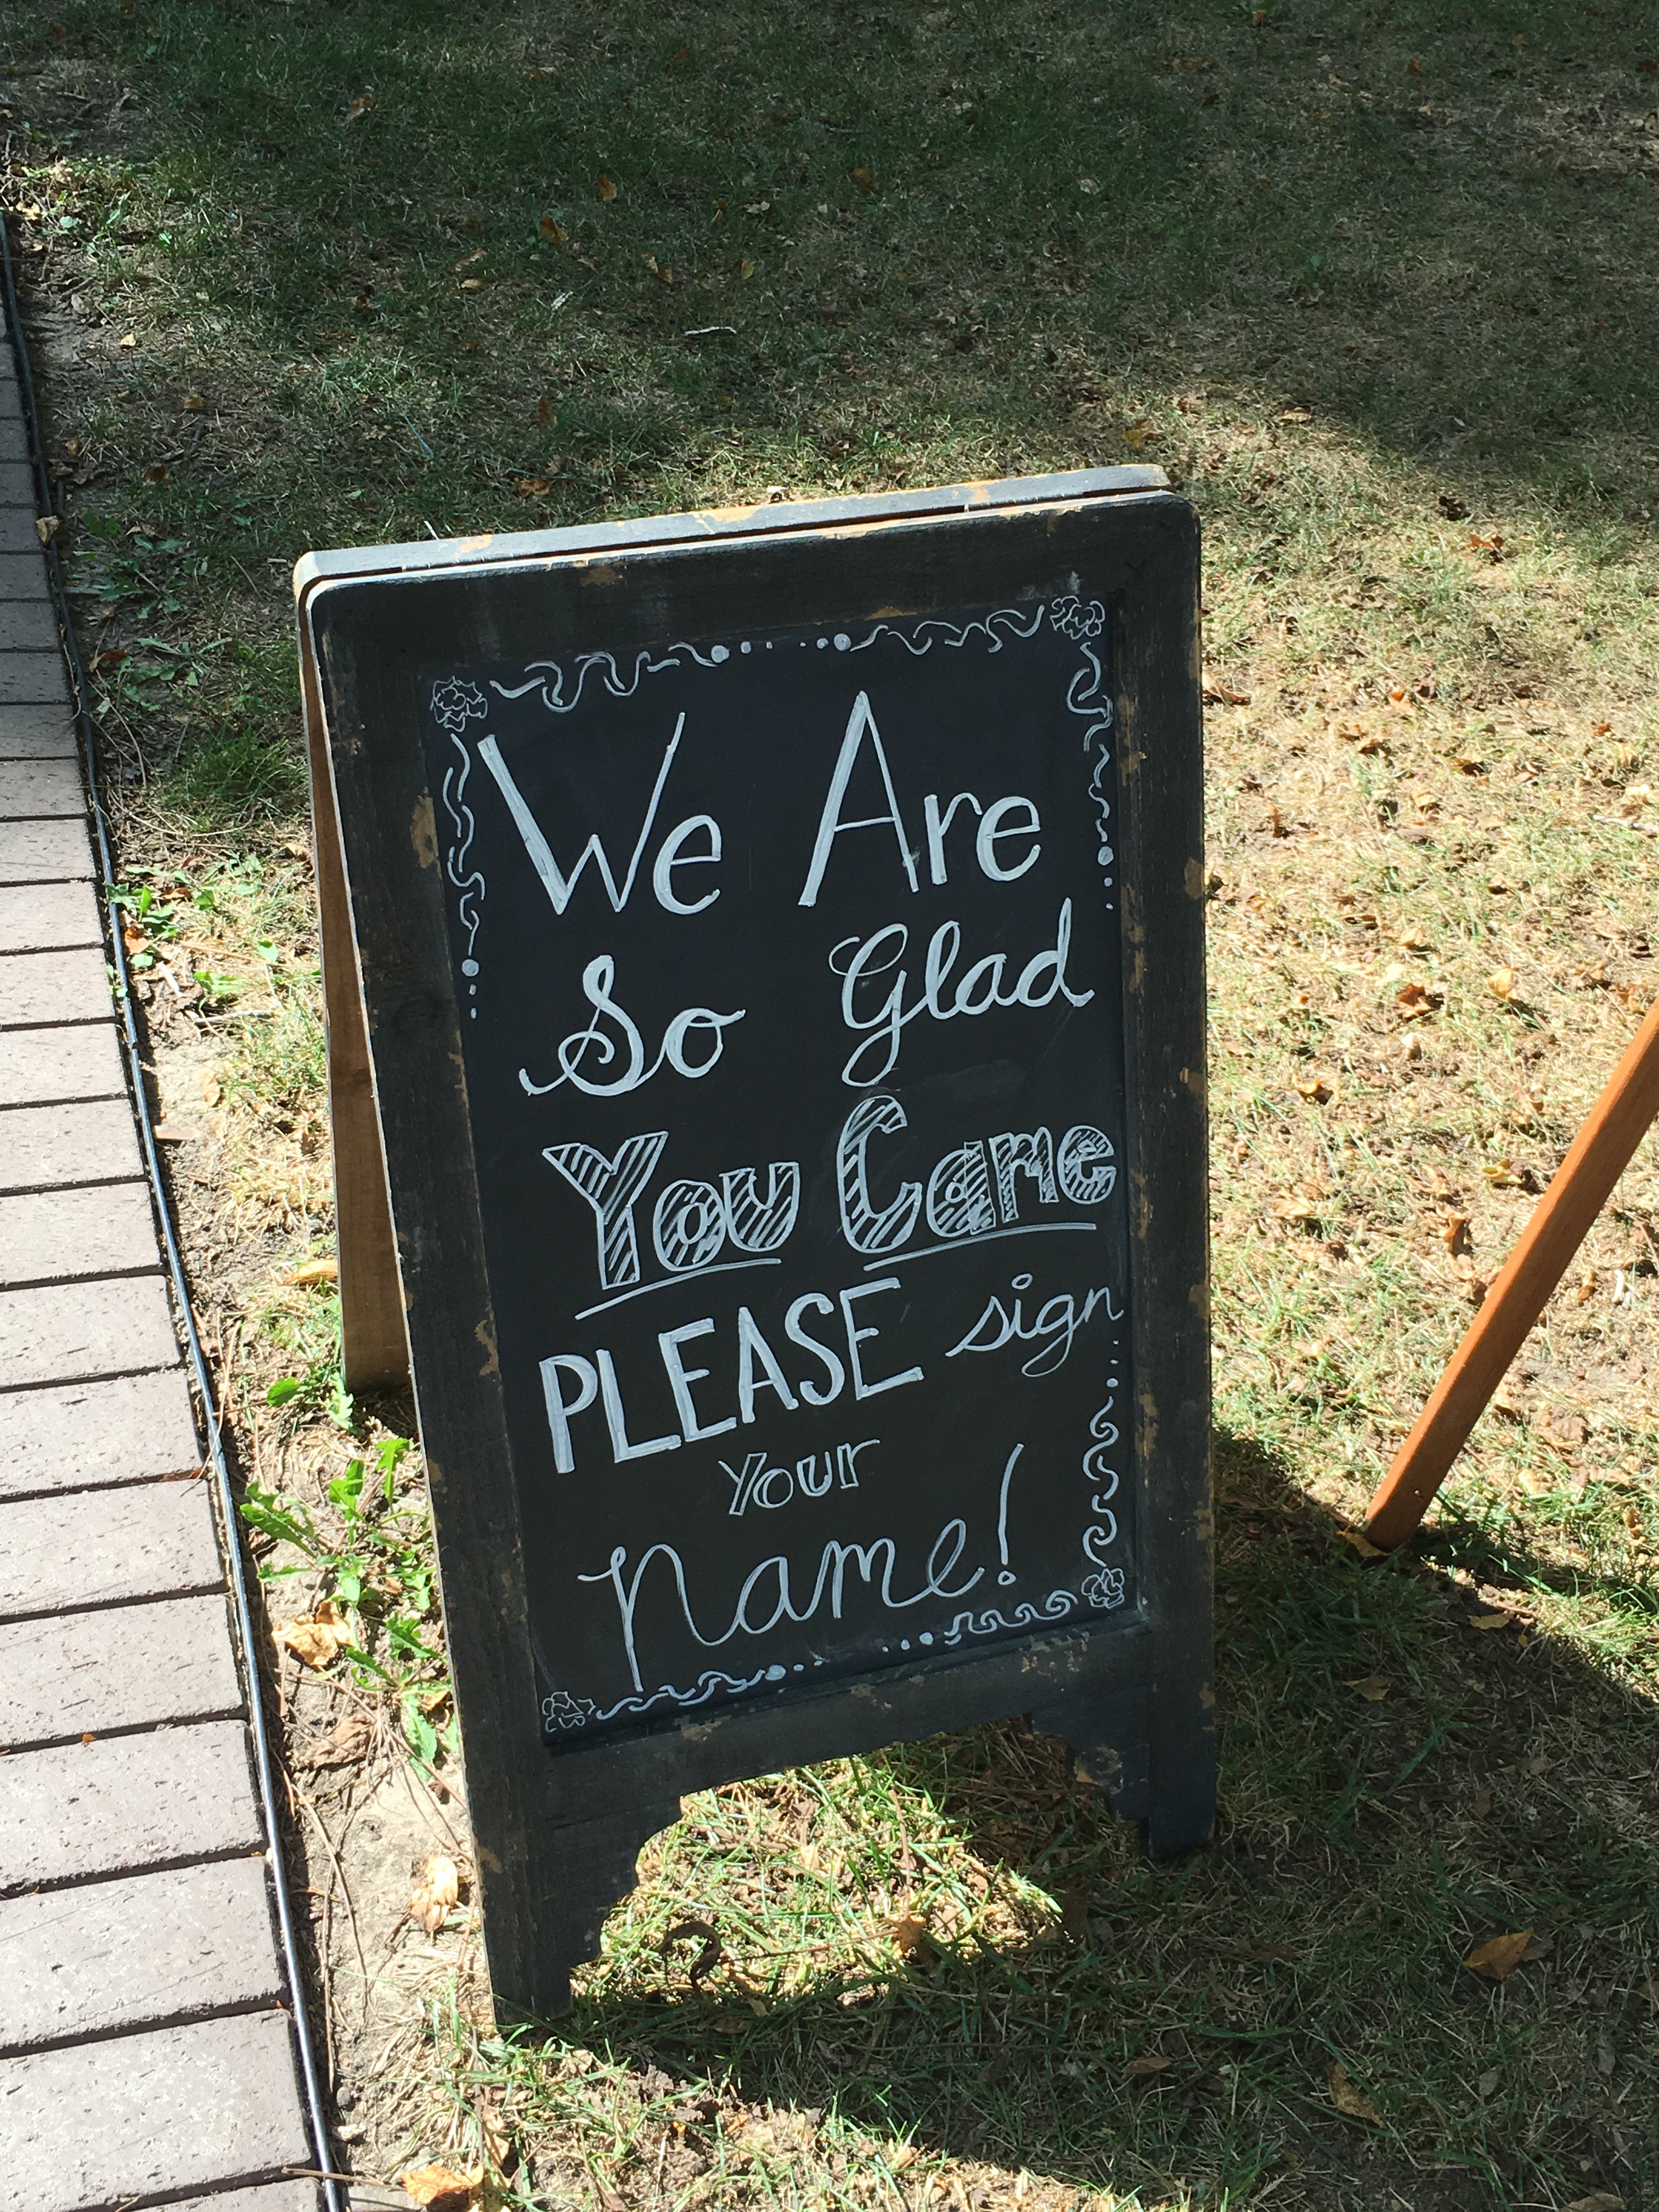 We Are
So Glad
You Came
PLEASE sign
Your
Name!